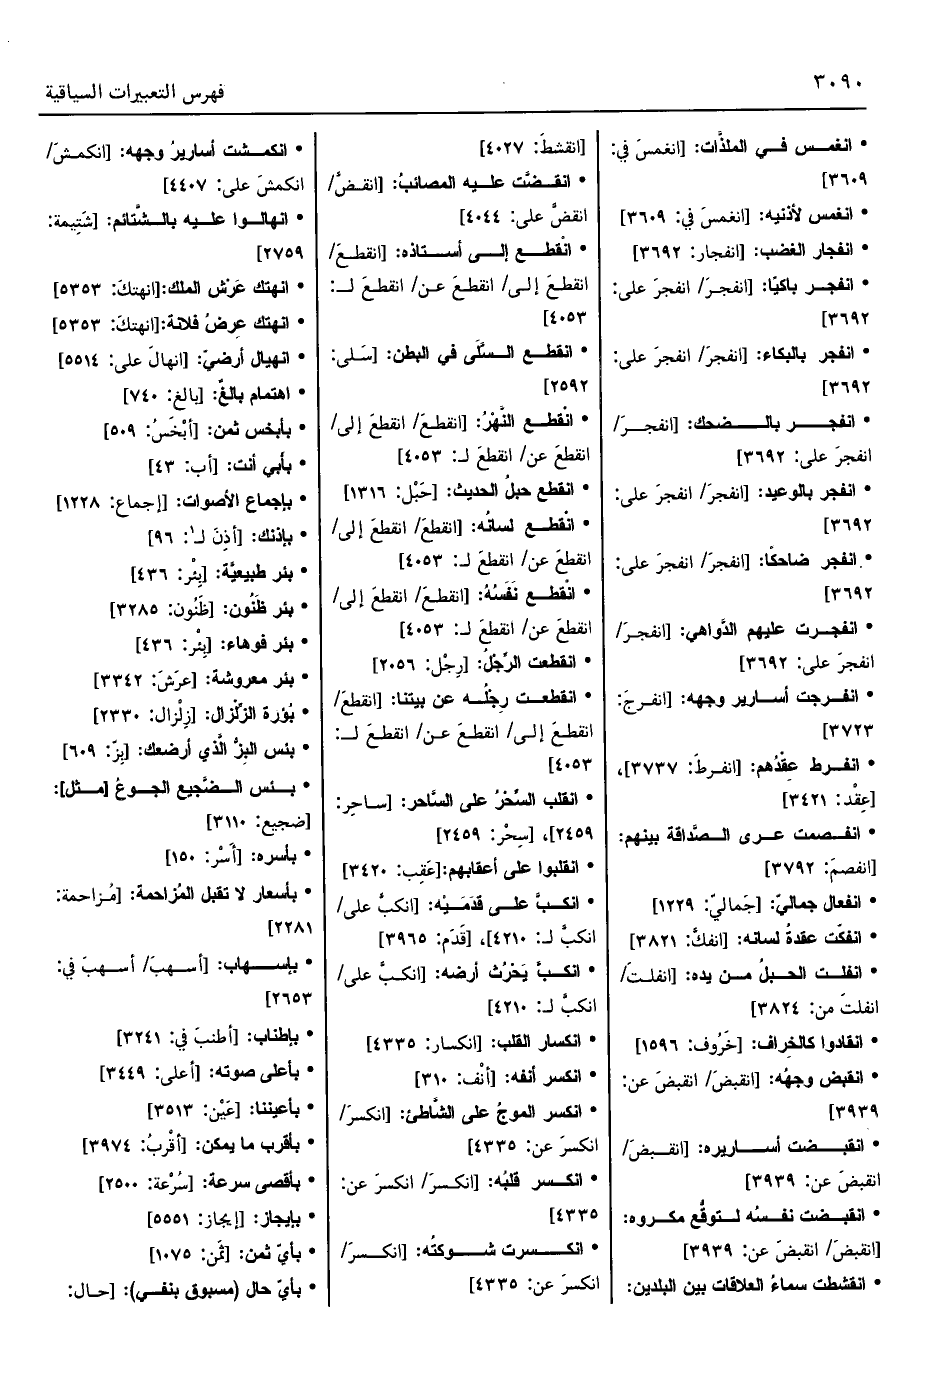 ٣٠٩٠
فهرس التعبيرات السياقية
• انغمس في الملذَّات: [انغمسَ في:
٣٦٠٩]
• انغمس لأذنيه: [انغمسَ في: ٣٦٠٩]
• انفجار الغضب: [انفجار: ٣٦٩٢]
• انفجر باكيًا: [انفجرَ/ انفجرَ على:
٣٦٩٢]
• انفجر بالبكاء: [انفجرَ/ انفجرَ على:
٣٦٩٢]
• انفجر بالضحك: [انفجرَ/
انفجرَ على: ٣٦٩٢]
• انفجر بالوعيد: [انفجرَ/ انفجرَ على:
٣٦٩٢]
• انفجر ضاحكًا: [انفجرَ/ انفجرَ على:
٣٦٩٢]
• انفجرت عليهم الدَّواهي: [انفجرَ/
انفجرَ على: ٣٦٩٢]
• انفرجت أسارير وجهه: [انفرجَ:
٣٧٢٣]
• انفرط عِقْدُهم: [انفرطَ: ٣٧٣٧]،
[عِقْد: ٣٤٢١]
• انفصمت عرى الصَّداقة بينهم:
[انفصمَ: ٣٧٩٢]
• انفعال جماليّ: [جَماليّ: ١٢٢٩]
• انفكَّت عقدةُ لسانه: [انفكَّ: ٣٨٢١]
• انفلت الحبلُ من يده: [انفلتَ/
انفلتَ من: ٣٨٢٤]
• انقادوا كالخراف: [خَرُوف: ١٥٩٦]
• انقبض وجهُه: [انقبضَ/ انقبضَ عن:
٣٩٣٩]
• انقبضت أساريره: [انقبضَ/
انقبضَ عن: ٣٩٣٩]
• انقبضت نفسُه لتوقُّع مكروه:
[انقبضَ/ انقبضَ عن: ٣٩٣٩]
• انقشطت سماءُ العلاقات بين البلدين:
[انقشطَ: ٤٠٢٧]
• انقضَّت عليه المصائبُ: [انقضَّ/
انقضَّ على: ٤٠٤٤]
• انْقطع إلى أستاذه: [انقطعَ/
انقطعَ إلى/ انقطعَ عن/ انقطعَ لـ:
٤٠٥٣]
• انقطع السَّلَى في البطن: [سَلى:
٢٥٩٢]
• انْقطع النَّهْرُ: [انقطعَ/ انقطعَ إلى/
انقطعَ عن/ انقطعَ لـ: ٤٠٥٣]
• انقطع حبلُ الحديث: [حَبْل: ١٣١٦]
• انْقطع لسانُه: [انقطعَ/ انقطعَ إلى/
انقطعَ عن/ انقطعَ لـ: ٤٠٥٣]
• انْقطع نَفَسُهُ: [انقطعَ/ انقطعَ إلى/
انقطعَ عن/ انقطعَ لـ: ٤٠٥٣]
• انقطعت الرِّجْلُ: [رِجْل: ٢٠٥٦]
• انقطعت رِجلُه عن بيتنا: [انقطعَ/
انقطعَ إلى/ انقطعَ عن/ انقطعَ لـ:
٤٠٥٣]
• انقلب السِّحْرُ على السَّاحر: [ساحِر:
٢٤٥٩]، [سِحْر: ٢٤٥٩]
• انقلبوا على أعقابهم:[عَقِب: ٣٤٢٠]
• انكبَّ على قدَمَيْه: [انكبَّ على/
انكبَّ لـ: ٤٢١٠]، [قَدَم: ٣٩٦٥]
• انكبَّ يَحْرُث أرضه: [انكبَّ على/
انكبَّ لـ: ٤٢١٠]
• انكسار القلب: [انكسار: ٤٣٣٥]
• انكسر أنفه: [أنْف: ٣١٠]
• انكسر الموجُ على الشَّاطئ: [انكسرَ/
انكسرَ عن: ٤٣٣٥]
• انكسر قلبُه: [انكسرَ/ انكسرَ عن:
٤٣٣٥]
• انكسرت شوكتُه: [انكسرَ/
انكسرَ عن: ٤٣٣٥]
• انكمشت أساريرُ وجهه: [انكمشَ/
انكمشَ على: ٤٤٠٧]
• انهالوا عليه بالشَّتائم: [شَتِيمة:
٢٧٥٩]
• انهتك عَرْش الملك:[انهتكَ: ٥٣٥٣]
• انهتك عرضُ فلانة:[انهتكَ: ٥٣٥٣]
• انهيال أرضيّ: [انهالَ على: ٥٥١٤]
• اهتمام بالغٌ: [بالغ: ٧٤٠]
• بأبخس ثمن: [أبْخَسُ: ٥٠٩]
• بأبي أنت: [أب: ٤٣]
• بإجماع الأصوات: [إجماع: ١٢٢٨]
• بإذنك: [أذِنَ لـ: ٩٦]
• بئر طبيعيَّة: [بِئْر: ٤٣٦]
• بئر ظَنُون: [ظَنُون: ٣٢٨٥]
• بئر فوهاء: [بِئْر: ٤٣٦]
• بئر معروشة: [عرَشَ: ٣٣٤٢]
• بُؤرة الزِّلزال: [زِلْزال: ٢٣٣٠]
• بئس البزُّ الَّذي أرضعك: [بِزّ: ٦٠٩]
• بئس الضَّجيع الجوعُ [مثل]:
[ضجيع: ٣١١٠]
• بأسره: [أَسْر: ١٥٠]
• بأسعار لا تقبل المُزاحمة: [مُزاحمة:
٢٢٨١]
• بإسهاب: [أسهبَ/ أسهبَ في:
٢٦٥٣]
• بإطناب: [أطنبَ في: ٣٢٤١]
• بأعلى صوته: [أعلى: ٣٤٤٩]
• بأعيننا: [عَيْن: ٣٥١٣]
• بأقرب ما يمكن: [أقْربُ: ٣٩٧٤]
• بأقصى سرعة: [سُرْعة: ٢٥٠٠]
• بإيجاز: [إيجاز: ٥٥٥١]
• بأيّ ثمن: [ثَمَن: ١٠٧٥]
• بأيّ حال (مسبوق بنفي): [حال: